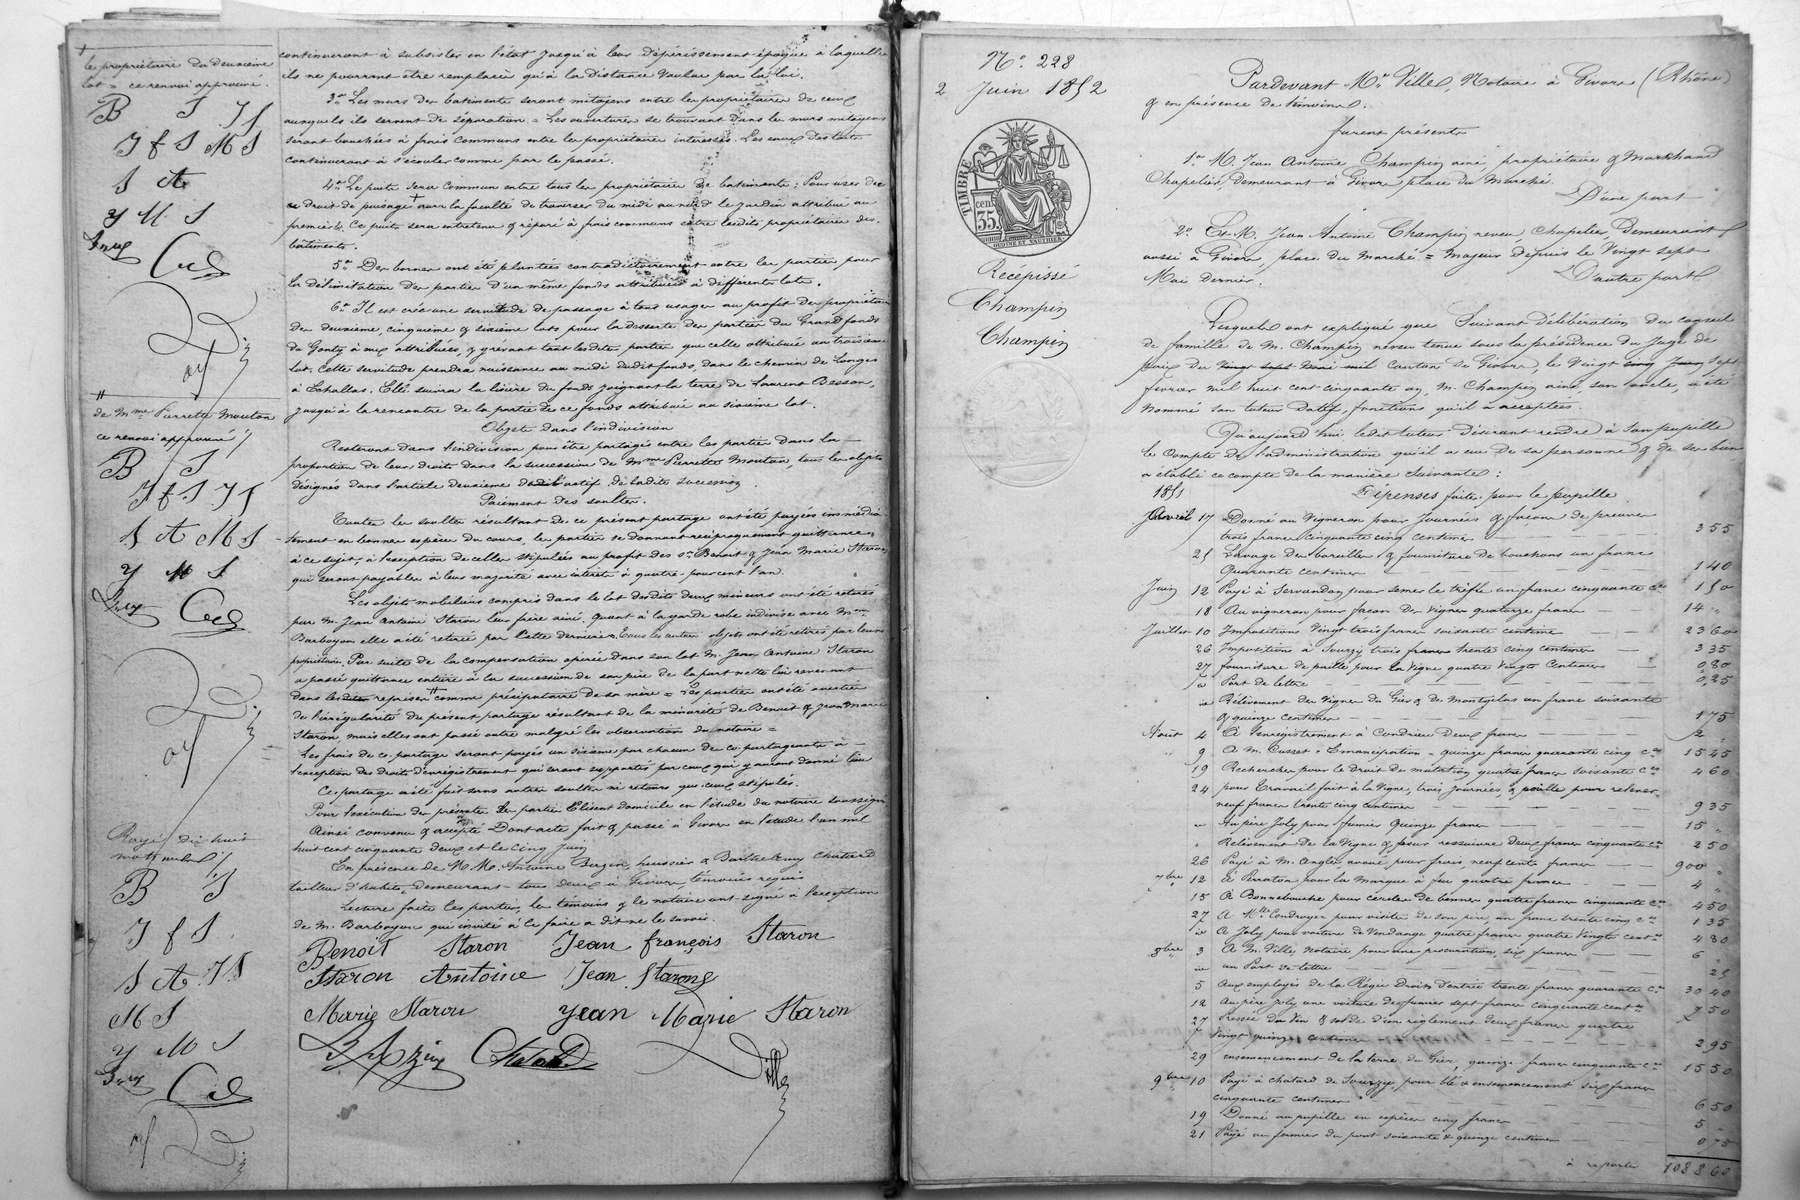 le propriétaire du deuxième
lot = ce renvoi approuvé.
B S JS
J f S MS
S A
J M S
continueront à subsister en l'état jusqu'à leur dépérissement époque à laquelle
ils ne pourront être remplacés qu'à la distance voulue par la loi.
3° Les murs des batiments seront mitoyens entre les propriétaires de ceux
auxquels ils servent de séparation = Les ouvertures se trouvant dans les murs mitoyens
seront bouchées à frais communs entre les propriétaires intéressés. Les eaux des toits
continueront à s'écouler comme par le passé.
4° Le puits sera commun entre tous les propriétaires de batiments : Pour user de
ce droit de puisage + aura la faculté de traverser du midi au nord le jardin attribué au
premier lot. Ce puits sera entretenu & réparé à frais communs entre lesdits propriétaires des
bâtiments.
5° Des bornes ont été plantées contradictoirement entre les parties pour
la délimitation des parties d'un même fonds attribuées à différents lots.
6° Il est créé une servitude de passage à tous usages au profit des propriétaires
des deuxième, cinquième & sixième lots pour la desserte des parties du Grand fonds
du Gonty à eux attribuées, & grévant tant lesdites parties que celle attribuée au troisième
lot. Cette servitude prendra naissance au midi dudit fonds, dans le chemin de Longes
à Echallas. Elle suivra la lisière du fonds joignant la terre de Laurent Besson,
jusqu'à la rencontre de la partie de ce fonds attribué au sixième lot
Objets dans l'indivision
Resteront dans l'indivision pour être partagés entre les parties dans la
proportion de leurs droits dans la succession de Mme Pierrette Mouton, tous les objets
désignés dans l'article deuxième de l'actif de ladite succession.
Paiement des soultes.
Toutes les soultes résultant de ce présent partage ont été payées immédia-
tement en bonnes espèces du cours, les parties se donnant réciproquement quittance
à ce sujet, à l'exception de celles stipulées au profit des srs Benoit & Jean Marie Staron
qui seront payables à leur majorité avec intérêts à quatre pour cent l'an.
Les objets mobiliers compris dans le lot desdits deux mineurs ont été retirés
par M. Jean Antoine Staron leur frère ainé. Quant à la garde robe indivise avec Mme
Barboyon elle a été retirée par cette dernière = Tous les autres objets ont été retirés par leurs
propriétaires. Par suite de la compensation opérée dans son lot M. Jean Antoine Staron
a passé quittance entière à la succession de son père de la part nette lui revenant
dans les dites reprises # comme préciputaire de sa mère = Les parties ont été averties
de l'irrégularité du présent partage résultant de la minorité de Benoit & Jean Marie
Staron, mais elles ont passé outre malgré les observations du notaire =
Les frais de ce partage seront payés un sixième par chacun des co-partageants à
l'exception des droits d'enregistrement qui seront supportés par ceux qui y auront donné lieu
Ce partage a été fait sans autres soultes ni retours que ceux stipulés.
Pour l'exécution des présentes les parties élisent domicile en l'étude du notaire soussigné
Ainsi convenu & accepté Dont acte fait & passé à Givors en l'étude l'an mil
huit cent cinquante deux et le cinq juin
En présence de M.M. Antoine Buzin, huissier & Barthelemy Chatard
tailleur d'habits, demeurant tous deux à Givors, témoins requis
Lecture faite les parties, les témoins & le notaire ont signé à l'exception
de M. Barboyon qui invité à le faire a dit ne le savoir.
Benoit Staron Jean françois Staron
Staron Antoine Jean Staron
Marie Staron Jean Marie Staron
Chatard Ville
#
de Mme Pierrette Mouton
ce renvoi approuvé /
B S
J f S JS
S A MS
J M S
Rayé dix huit
mots nuls /
B S
J f S
S A JS
MS
J M S
N° 228
2 Juin 1852
TIMBRE
35 cent
OUDINÉ ET VAUTHIER
Recepisse
Champin
Champin
Pardevant Me Ville, Notaire à Givors (Rhône)
& en présence de témoins.
furent présents
1° M. Jean Antoine Champin ainé, propriétaire & Marchand
Chapelier, demeurant à Givors place du Marché.
D'une part
2° Et M. Jean Antoine Champin neveu Chapelier, demeurant
aussi à Givors, place du Marché = Majeur depuis le Vingt sept
Mai dernier.
D'autre part
Lesquels ont expliqué que Suivant délibération du conseil
de famille de M. Champin neveu tenue sous la présidence du Juge de
paix du canton de Givors, le Vingt sept
février mil huit cent cinquante un, M. Champin ainé son oncle, a été
nommé son tuteur Datif, fonctions qu'il a acceptées.
Qu'aujourd'hui ledit tuteur désirant rendre à son pupille
le Compte de l'administration qu'il a eu de sa personne & de ses biens
a établi ce compte de la manière suivante :
1851 Dépenses faites pour le pupille
Avril 17 Donné au Vigneron pour Journées & façon de preuves
trois francs cinquante cinq centimes 3 55
21 Lavage de barailles & fourniture de bouchons un franc
Quarante centimes 1 40
Juin 12 Payé à Servandon, pour semer le trèfle un franc cinquante c. 1 50
18 Au vigneron pour façon des Vignes quatorze francs 14 "
Juillet 10 Impositions Vingt trois francs soixante centimes 23 60
26 Imposition à Sourzy trois francs trente cinq centimes 3 35
27 fourniture de paille pour la Vigne quatre Vingts Centimes 0,80
Port de lettre 0,25
Relèvement des Vignes du Gier & de Montgelas un franc soixante
& quinze centimes 1 75
Aout 4 A l'enregistrement à Condrieu Deux francs 2 "
9 A M. Cusset = Emancipation = quinze francs quarante cinq c. 15 45
19 Recherches pour le Droit de mutation quatre francs soixante c. 4 60
24 pour travail fait à la Vigne, trois journées, & paille pour relever
neuf francs trente cinq centimes 9 35
" Au père Joly pour fumier Quinze francs 15 "
" Relèvement de la Vigne & pour ressuivre deux francs cinquante c. 2 50
26 Payé à M. Anglès avoué pour frais, neuf cents francs 900 "
7bre 12 à Perraton pour la Marque à feu quatre francs 4 "
15 A Bonnebouche pour cercler des bennes quatre francs cinquante c. 4 50
27 A Mr Condroyer pour visites de son père, un franc trente cinq c. 1 35
A Joly pour voiture de Vendange quatre francs quatre Vingts cent. 4 80
8bre 3 A M. Ville, notaire pour une procuration, six francs 6 "
un Port de lettre 25
5 Aux employés de la Régie Droits d'entrée trente francs quarante c. 30 40
12 Au père Joly une voiture de fumier sept francs cinquante cent. 7 50
27 Pressée du Vin & solde d'un règlement deux francs quatre
Vingt quinze centimes 2 95
29 ensemencement de la terre du Gier, quinze francs cinquante c. 15 50
9bre 10 Payé à chatard de Sourzy, pour blé & ensemencement six francs
cinquante centimes 6 50
19 Donné au pupille en espèces cinq francs 5 "
21 Payé au fermier du pont soixante & quinze centimes 0,75
à reporter 1088 60